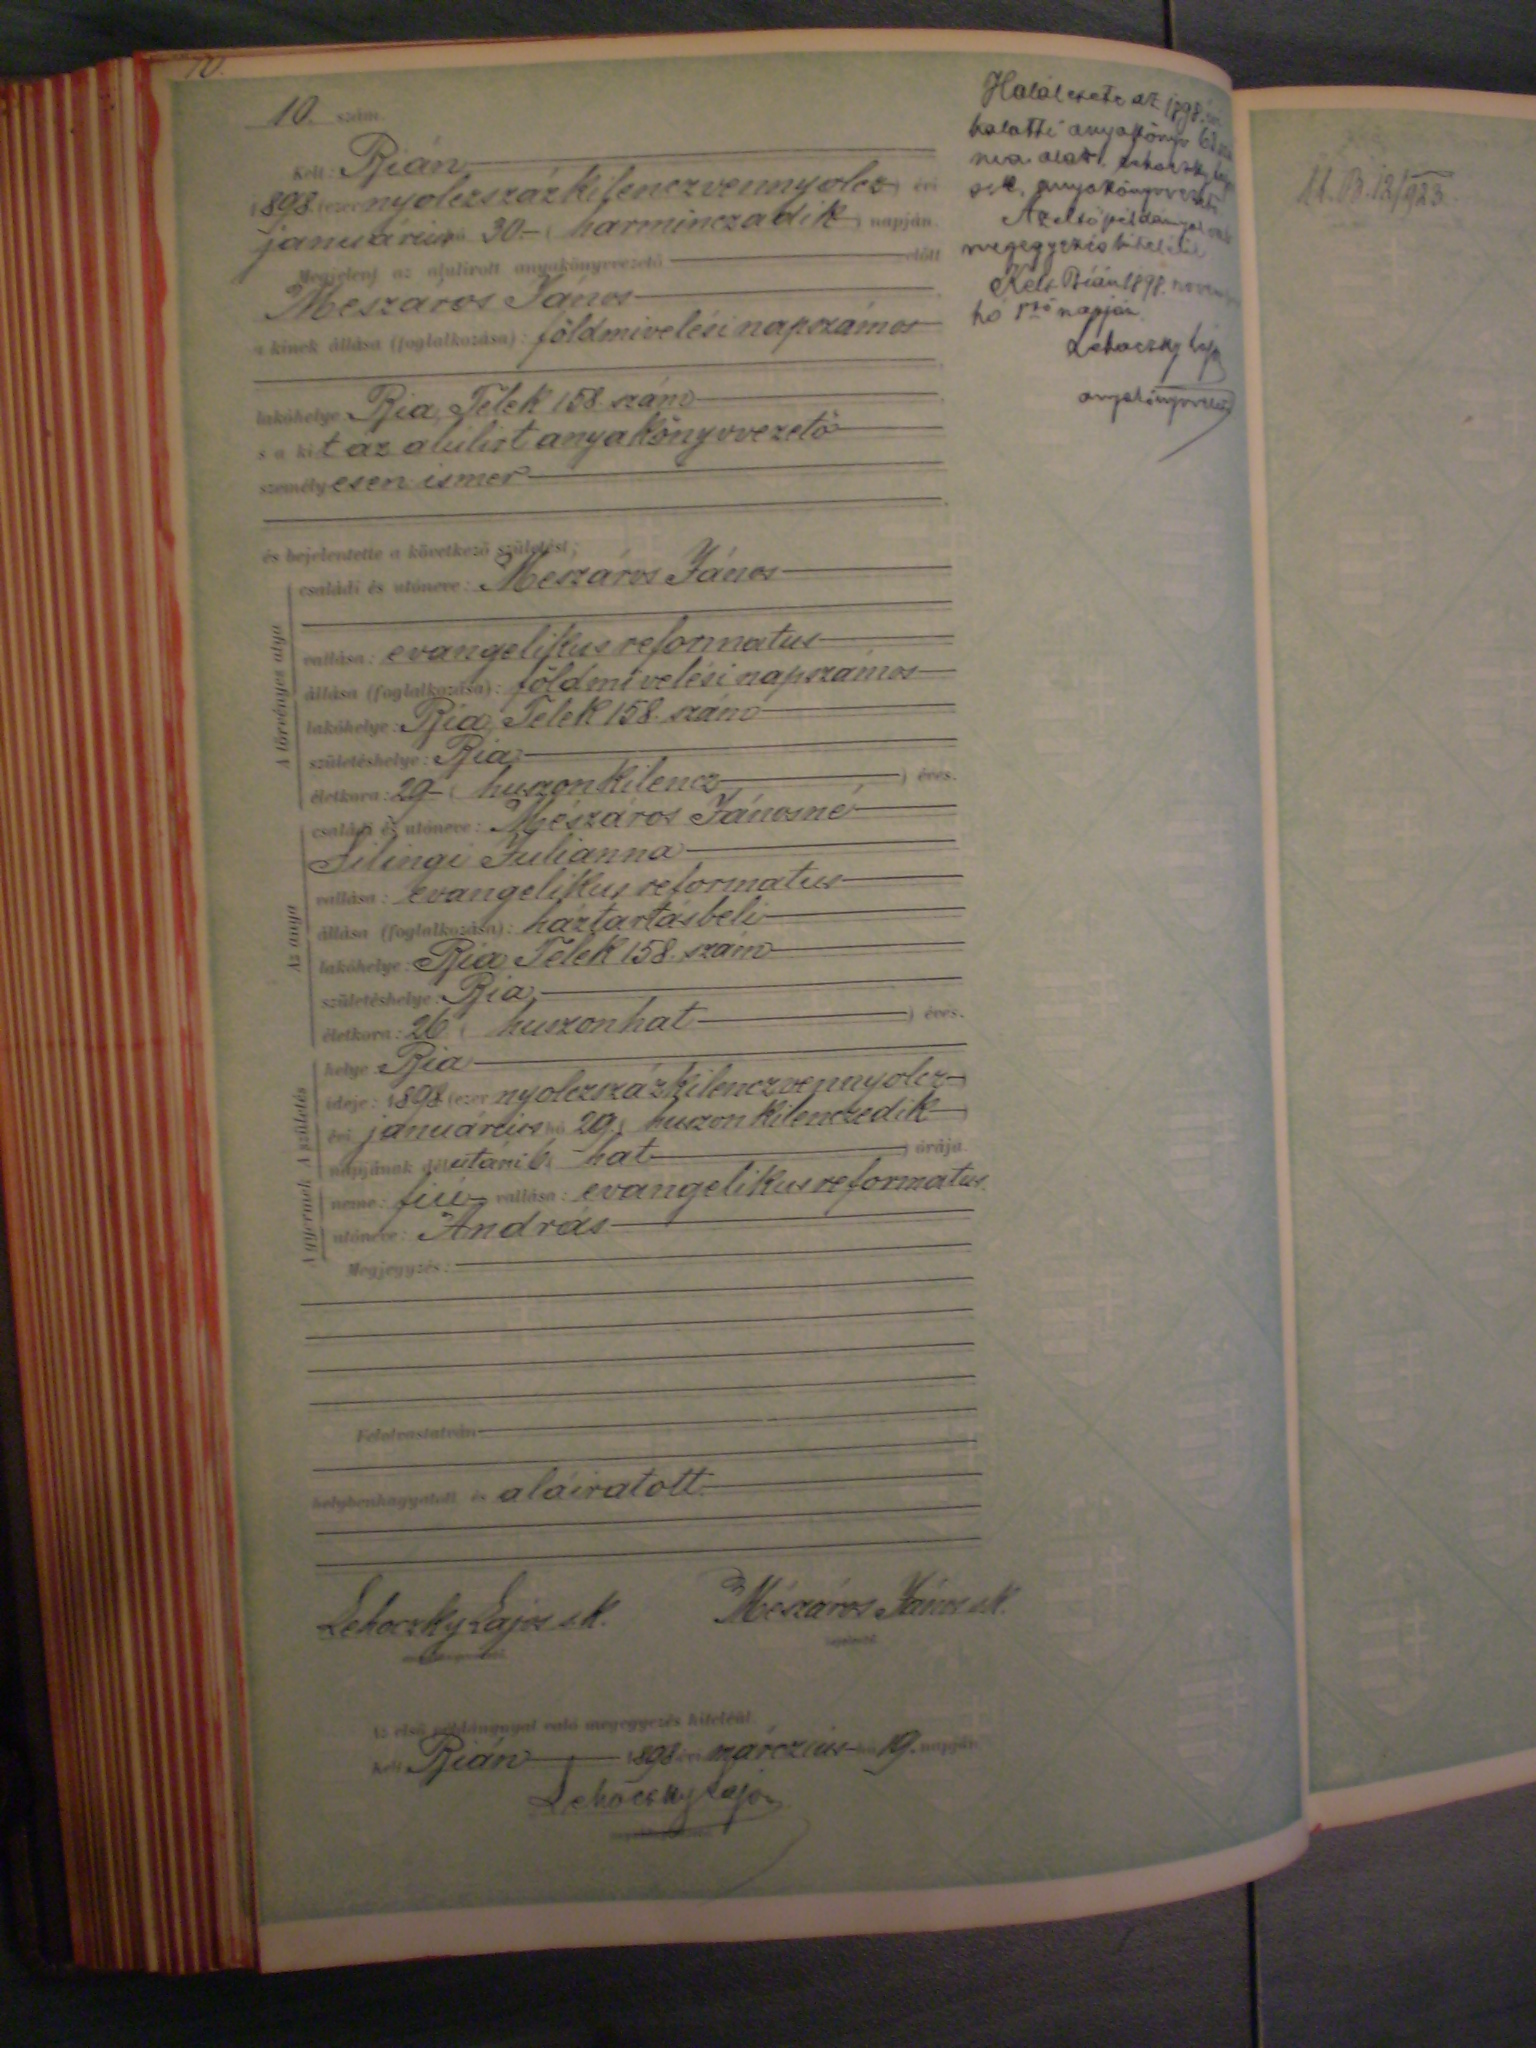 10.
10. szám.
Kelt: Bián
1898 (ezer nyolczszázkilenczvennyolcz) évi
januárius hó 30 (harminczadik) napján.
Megjelent az alulirott anyakönyvezető előtt
Mészáros János
a kinek állása (foglalkozása): földmivelési napszámos
lakóhelye Bia, Telek 158. szám
s a kit az alulirt anyakönyvvezető
személyesen ismer
és bejelentette a következő születést:
A törvényes atya
családi és utóneve: Mészáros János
vallása: evangelikus reformatus
állása (foglalkozása): földmivelési napszámos
lakóhelye: Bia, Telek 158. szám
születéshelye: Bia
életkora: 29 (huszonkilencz) éves.
Az anya
családi és utóneve: Mészáros Jánosné
Silingi Julianna
vallása: evangelikus reformatus
állása (foglalkozása): háztartásbeli
lakóhelye: Bia Telek 158. szám
születéshelye: Bia
életkora: 26 (huszonhat) éves.
A születés
helye Bia
ideje: 1898 (ezer nyolczszázkilenczvennyolcz)
évi januárius hó 29. (huszonkilenczedik)
napjának délutáni 6 (hat) órája.
A gyermek
neme: fiú vallása: evangelikus reformatus.
utóneve: András
Megjegyzés:
Felolvastatván
helybenhagyatott és aláiratott.
Lehoczky Lajos sk. Mészáros János sk.
Az első példánynyal való megegyezés hiteléül.
Kelt Bián 1898 évi márczius hó 19. napján
Lehoczky Lajos
Halálesete az 1898. évi
halotti anyakönyv
alatt. Lehoczky Lajos
s.k. anyakönyvvezető
Az első példánynyal való
megegyezés hiteléül
Kelt Bián 1898. november
hó 1ső napján.
Lehoczky Lajos
anyakönyvvezető
12/923